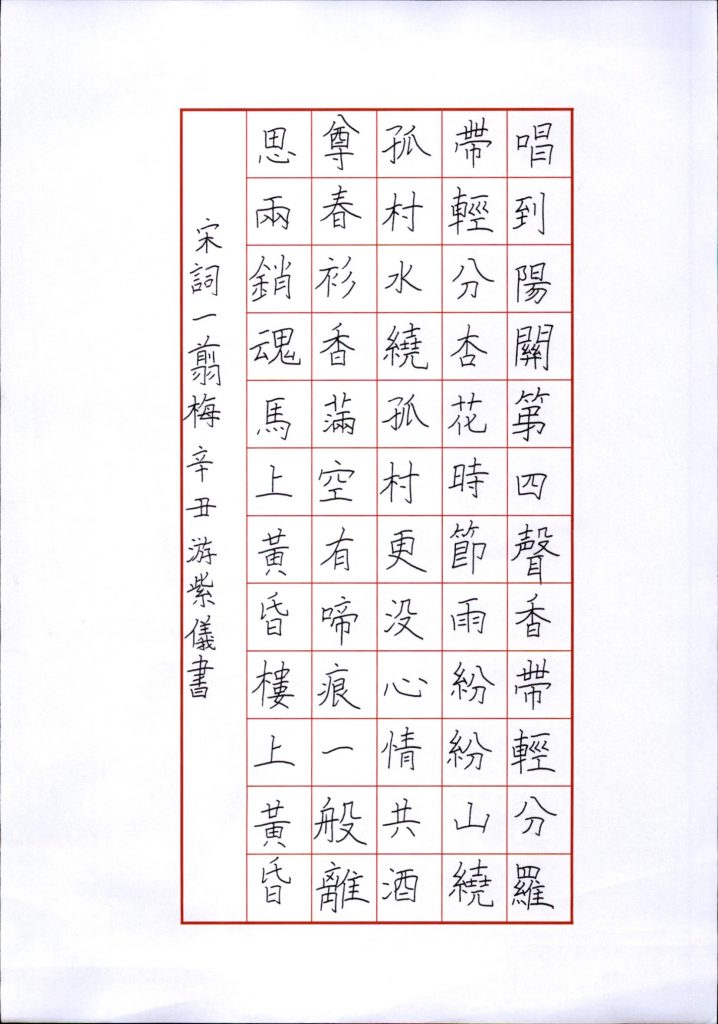 唱到陽關第四聲香帶輕分羅
帶輕分杏花時節雨紛紛山繞
孤村水繞孤村更没心情共酒
尊春衫香滿空有啼痕一般離
思兩銷魂馬上黃昏樓上黃昏
宋詞一翦梅辛丑游紫儀書